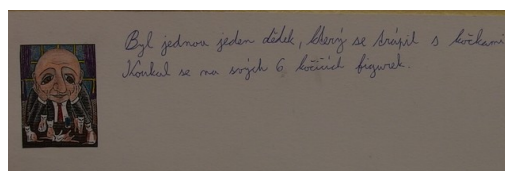 Byl jednou jeden dědek, který se trápil s kočkami
Koukal se na svých 6 kočičích figurek.